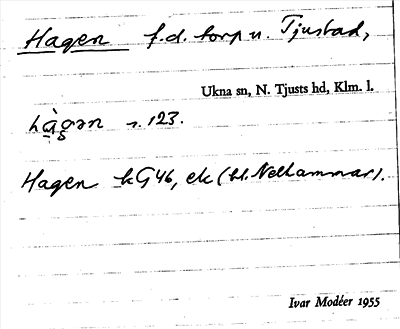 Hagen f.d. torp u. Tjustad,
Ukna sn, N. Tjusts hd, Klm. l.
hàgən s. 123.
Hagen kG46, ek (bl. Nelhammar).
Ivar Modéer 1955